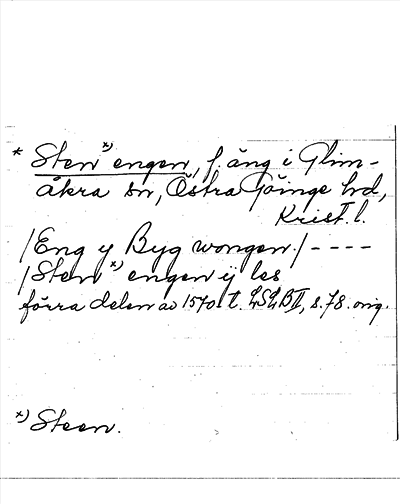 * Sten ˣ⁾ engen, f. äng i Glim-
åkra sn, Östra Göinge hd,
Krist. l.
/Eng y Byg wongen/ - - - -
/Sten ˣ⁾ engen ÿ les
förra delen av 1570 t. LSLBII, s. 78. orig.
ˣ⁾ Steen.